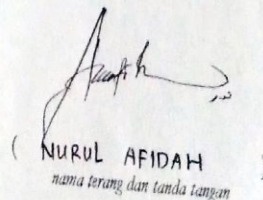 ( NURUL AFIDAH )
nama terang dan tanda tangan